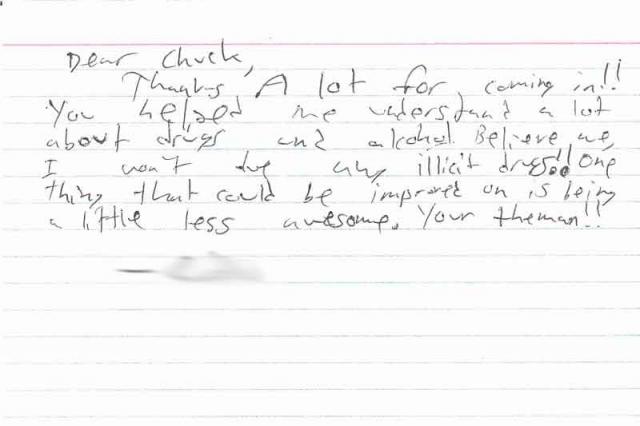 Dear Chuck,
Thanks A lot for coming in!!
You helped me understand a lot
about drugs and alcohol. Believe me,
I won't any illicit drugs!! One
thing that could be improved on is being
a little less awesome. Your theman!!